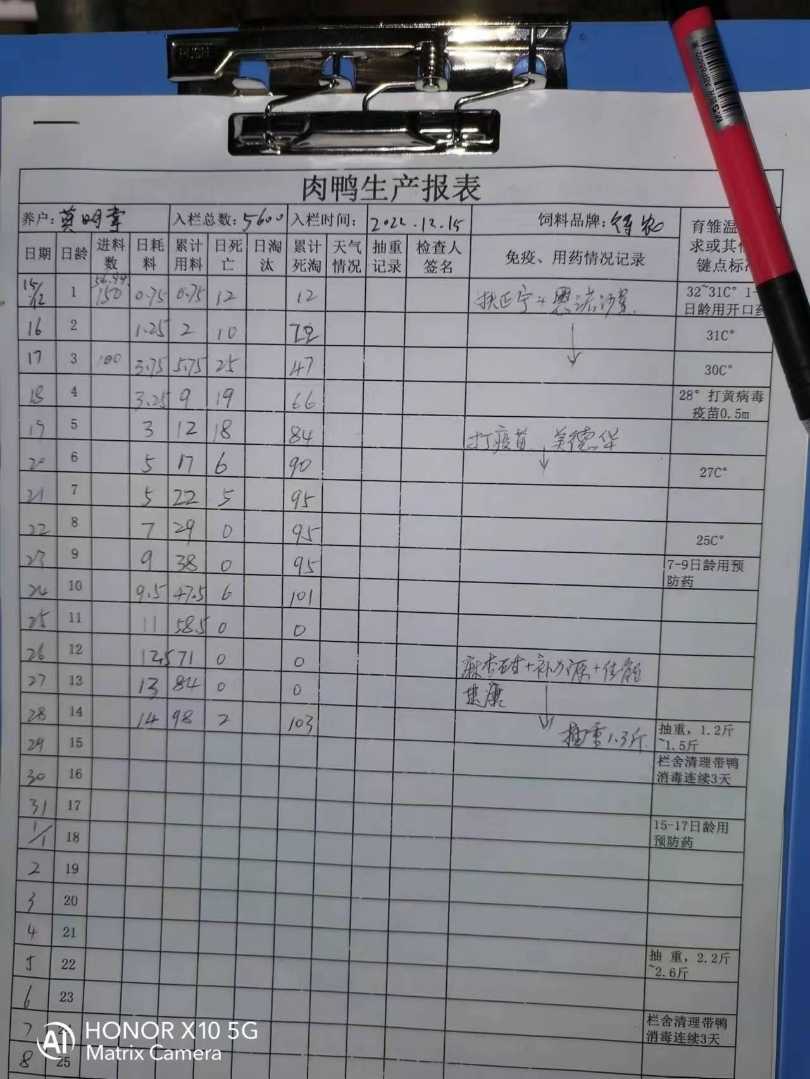 肉鸭生产报表
养户: 莫明 入栏总数: 5600 入栏时间: 2022.12.15 饲料品牌: 育雏温
求或其
键点标
日期 日龄 进料数 日耗料 累计用料 日死亡 日淘汰 累计死淘 天气情况 抽重记录 检查人签名 免疫、用药情况记录
15/12 1 150 0.75 0.75 12 12 32~31C° 1-
日龄用开口药
16 2 1.25 2 10 31C°
17 3 100 3.75 5.75 25 47 30C°
18 4 3.25 9 19 66 28° 打黄病毒
疫苗0.5m
19 5 3 12 18 84 打疫苗
20 6 5 17 6 90 27C°
21 7 5 22 5 95
22 8 7 29 0 95 25C°
23 9 9 38 0 95 7-9日龄用预
防药
24 10 9.5 47.5 6 101
25 11 11 58.5 0 0
26 12 12.5 71 0 0
27 13 13 84 0 0 健康
28 14 14 98 2 103 抽重1.3斤 抽重，1.2斤
~1.5斤
29 15
30 16 栏舍清理带鸭
消毒连续3天
31 17
1/1 18 15-17日龄用
预防药
2 19
3 20
4 21
5 22 抽 重，2.2斤
~2.6斤
6 23
7 栏舍清理带鸭
消毒连续3天
8 25
HONOR X10 5G
Matrix Camera